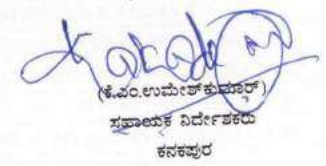 (ಕೆ.ಎಂ.ಉಮೇಶ್‌ಕುಮಾರ್)
ಸಹಾಯಕ ನಿರ್ದೇಶಕರು
ಕನಕಪುರ